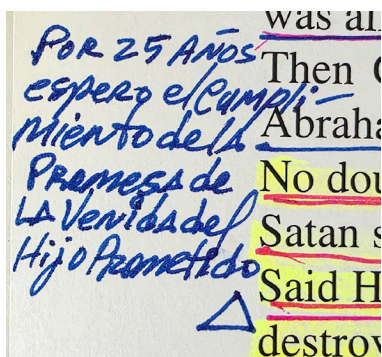 was all
POR 25 AÑOS
espero el Cumpli-
miento de la
Promesa de
LA Venida del
Hijo Prometido
Then
Abraha
No dou
Satan s
Said H
destroy